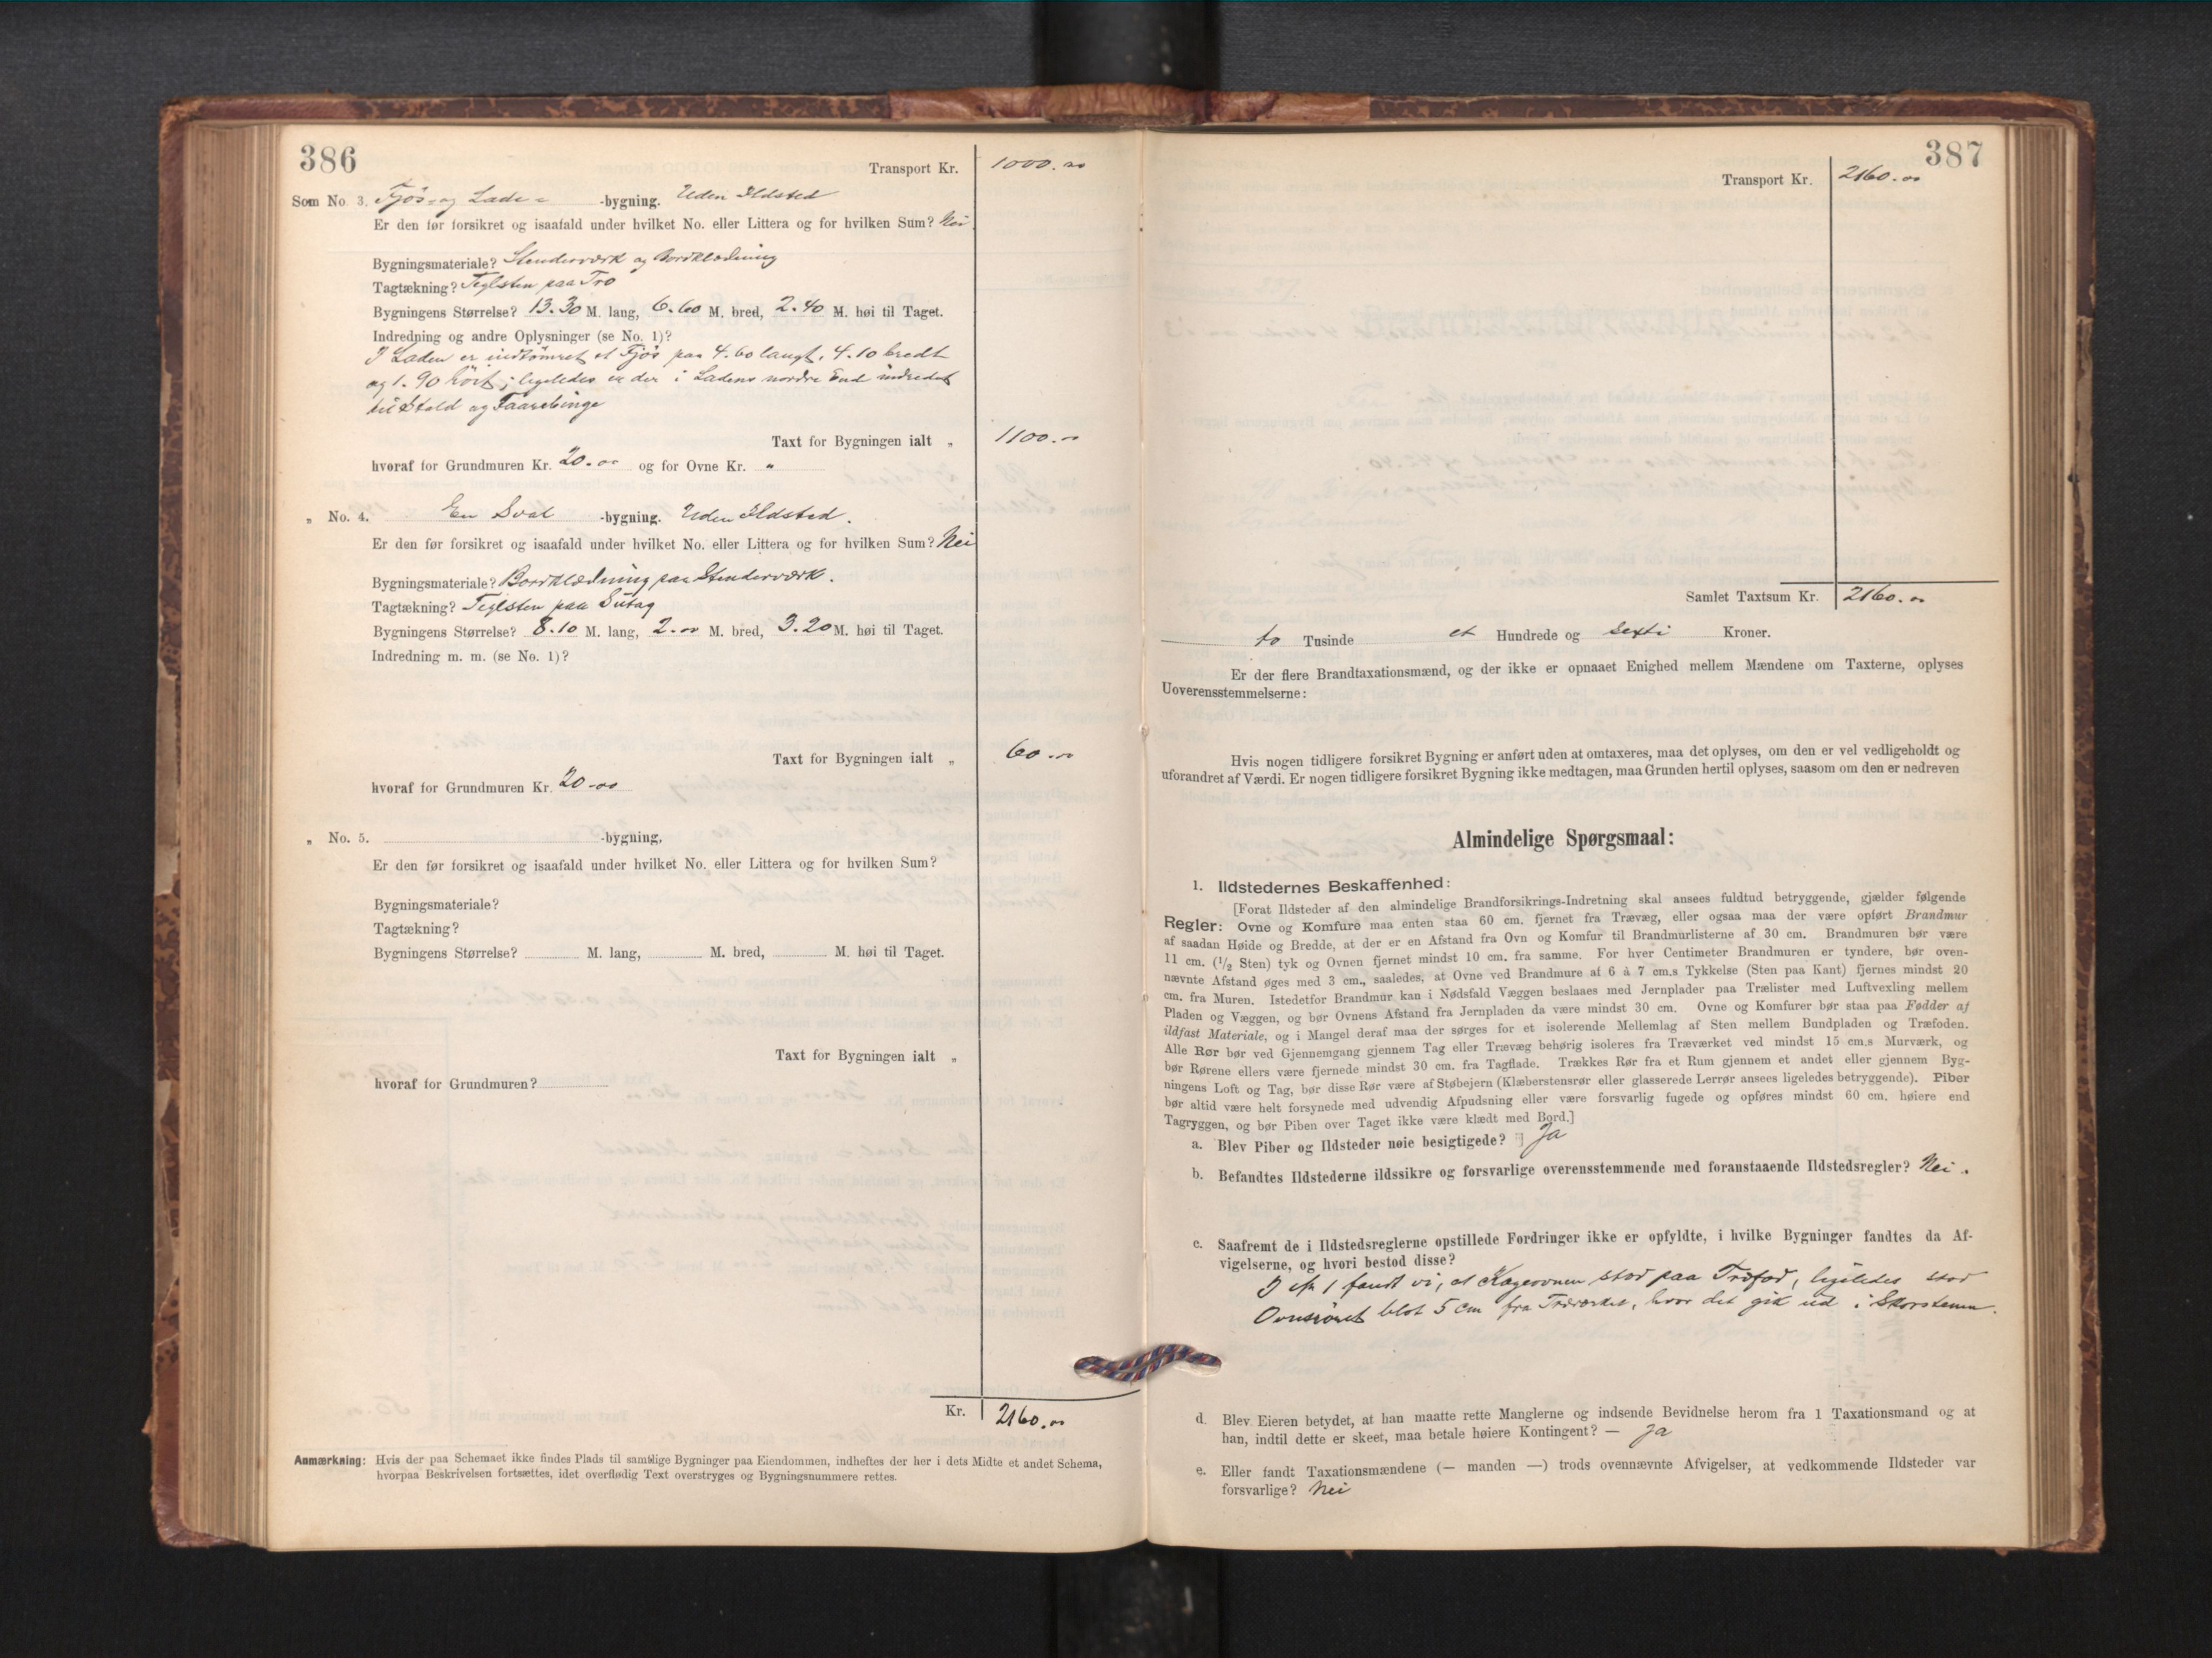 386
Transport Kr. 1000.00
Som No. 3. Fjøs- og Lade- -bygning. Uden Ildsted
Er den før forsikret og isaafald under hvilket No. eller Littera og for hvilken Sum? Nei
Bygningsmateriale? Stenderværk og Bordklædning
Tagtækning? Teglsten paa Tro
Bygningens Størrelse? 13.30 M. lang, 6.60 M. bred, 2.40 M. høi til Taget.
Indredning og andre Oplysninger (se No. 1)?
I Laden er indtømret et Fjøs paa 4.60 langt, 4.10 bredt
og 1.90 høit; ligeledes er der i Ladens nordre End indredet
til Stald og Faarebinge
Taxt for Bygningen ialt „ 1100.00
hvoraf for Grundmuren Kr. 20.00 og for Ovne Kr. "
„ No. 4. En Sval -bygning. Uden Ildsted.
Er den før forsikret og isaafald under hvilket No. eller Littera og for hvilken Sum? Nei
Bygningsmateriale? Bordklædning paa Stenderværk.
Tagtækning? Teglsten paa Sutag
Bygningens Størrelse? 8.10 M. lang, 2.00 M. bred, 3.20 M. høi til Taget.
Indredning m. m. (se No. 1)?
Taxt for Bygningen ialt „ 60.00
hvoraf for Grundmuren Kr. 20.00
„ No. 5. -bygning,
Er den før forsikret og isaafald under hvilket No. eller Littera og for hvilken Sum?
Bygningsmateriale?
Tagtækning?
Bygningens Størrelse? M. lang, M. bred, M. høi til Taget.
Taxt for Bygningen ialt „
hvoraf for Grundmuren?
Kr. 2160.00
Anmærkning: Hvis der paa Schemaet ikke findes Plads til samtlige Bygninger paa Eiendommen, indheftes der her i dets Midte et andet Schema,
hvorpaa Beskrivelsen fortsættes, idet overflødig Text overstryges og Bygningsnummere rettes.
387
Transport Kr. 2160.00
Samlet Taxtsum Kr. 2160.00
to Tusinde et Hundrede og sexti Kroner.
Er der flere Brandtaxationsmænd, og der ikke er opnaaet Enighed mellem Mændene om Taxterne, oplyses
Uoverensstemmelserne:
Hvis nogen tidligere forsikret Bygning er anført uden at omtaxeres, maa det oplyses, om den er vel vedligeholdt og
uforandret af Værdi. Er nogen tidligere forsikret Bygning ikke medtagen, maa Grunden hertil oplyses, saasom om den er nedreven
Almindelige Spørgsmaal:
1. Ildstedernes Beskaffenhed:
[Forat Ildsteder af den almindelige Brandforsikrings-Indretning skal ansees fuldtud betryggende, gjælder følgende
Regler: Ovne og Komfure maa enten staa 60 cm. fjernet fra Trævæg, eller ogsaa maa der være opført Brandmur
af saadan Høide og Bredde, at der er en Afstand fra Ovn og Komfur til Brandmurlisterne af 30 cm. Brandmuren bør være
11 cm. (1/2 Sten) tyk og Ovnen fjernet mindst 10 cm. fra samme. For hver Centimeter Brandmuren er tyndere, bør oven-
nævnte Afstand øges med 3 cm., saaledes, at Ovne ved Brandmure af 6 à 7 cm.s Tykkelse (Sten paa Kant) fjernes mindst 20
cm. fra Muren. Istedetfor Brandmur kan i Nødsfald Væggen beslaaes med Jernplader paa Trælister med Luftvexling mellem
Pladen og Væggen, og bør Ovnens Afstand fra Jernpladen da være mindst 30 cm. Ovne og Komfurer bør staa paa Fødder af
ildfast Materiale, og i Mangel deraf maa der sørges for et isolerende Mellemlag af Sten mellem Bundpladen og Træfoden.
Alle Rør bør ved Gjennemgang gjennem Tag eller Trævæg behørig isoleres fra Træværket ved mindst 15 cm.s Murværk, og
bør Rørene ellers være fjernede mindst 30 cm. fra Tagflade. Trækkes Rør fra et Rum gjennem et andet eller gjennem Byg-
ningens Loft og Tag, bør disse Rør være af Støbejern (Klæberstensrør eller glasserede Lerrør ansees ligeledes betryggende). Piber
bør altid være helt forsynede med udvendig Afpudsning eller være forsvarlig fugede og opføres mindst 60 cm. høiere end
Tagryggen, og bør Piben over Taget ikke være klædt med Bord.]
a. Blev Piber og Ildsteder nøie besigtigede? Ja
b. Befandtes Ildstederne ildssikre og forsvarlige overensstemmende med foranstaaende Ildstedsregler? Nei.
c. Saafremt de i Ildstedsreglerne opstillede Fordringer ikke er opfyldte, i hvilke Bygninger fandtes da Af-
vigelserne, og hvori bestod disse?
I № 1 fandt vi, at Kogeovnen stod paa Træfod, ligeledes stod
Ovnsrøret blot 5 cm fra Træværket, hvor det gik ud i Skorstenen.
d. Blev Eieren betydet, at han maatte rette Manglerne og indsende Bevidnelse herom fra 1 Taxationsmand og at
han, indtil dette er skeet, maa betale høiere Kontingent? — Ja
e. Eller fandt Taxationsmændene (— manden —) trods ovennævnte Afvigelser, at vedkommende Ildsteder var
forsvarlige? Nei